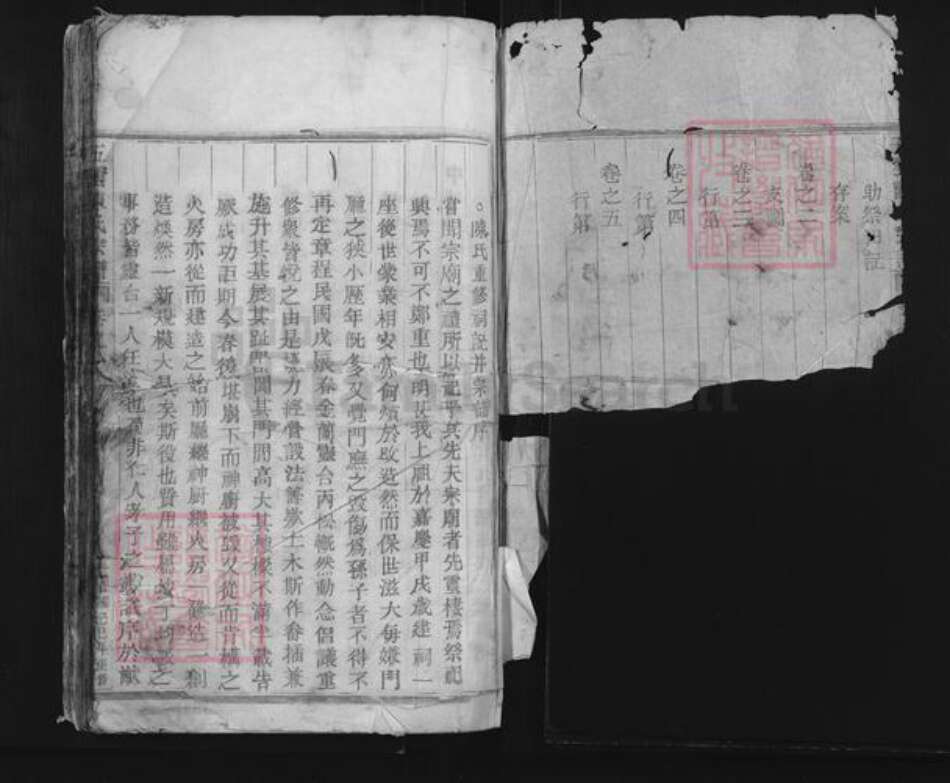 助祭
存案
卷之二
支圖
卷之三
行第
卷之四
行第
卷之五
行第
陳氏重修祠說并宗譜序
嘗聞宗廟之禮所以祀乎其先夫宗廟者先靈棲焉祭祀
興焉不可不鄭重也明矣我上祖於嘉慶甲戌歲建祠一
座後世蒙業相安亦何煩於改造然而保世滋大每嫌門
閭之狹小歷年旣多又覺門廡之毀傷爲孫子者不得不
再定章程民國戊辰春金蘭憲台丙松慨然動念倡議重
修衆皆悅之由是竭力經營設法籌款土木斯作畚插兼
施升其基展其趾開其門閭高大其棟樑不滿載告
厥成功詎期今春後堪崩下而神廚被毀又從而肯構之
火房亦從而建造之始前廳繼神廚繼火房一修造一創
造煥然一新規模大具矣斯役也費用雖照丁均派之
事務皆憲台一人任也非仁人孝子之序於猷